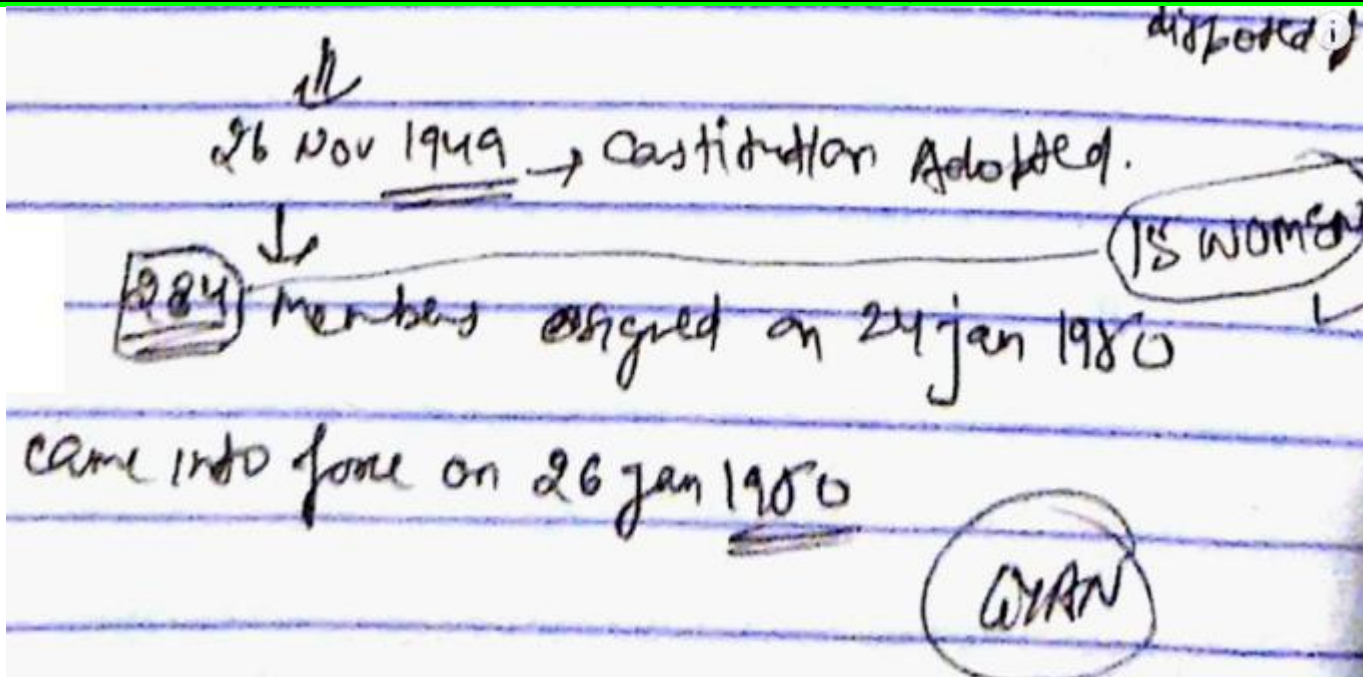 26 Nov 1949 → Constitution Adopted.
15 WOMEN
284 Members assigned on 24 jan 1950
came into force on 26 jan 1950
GYAN